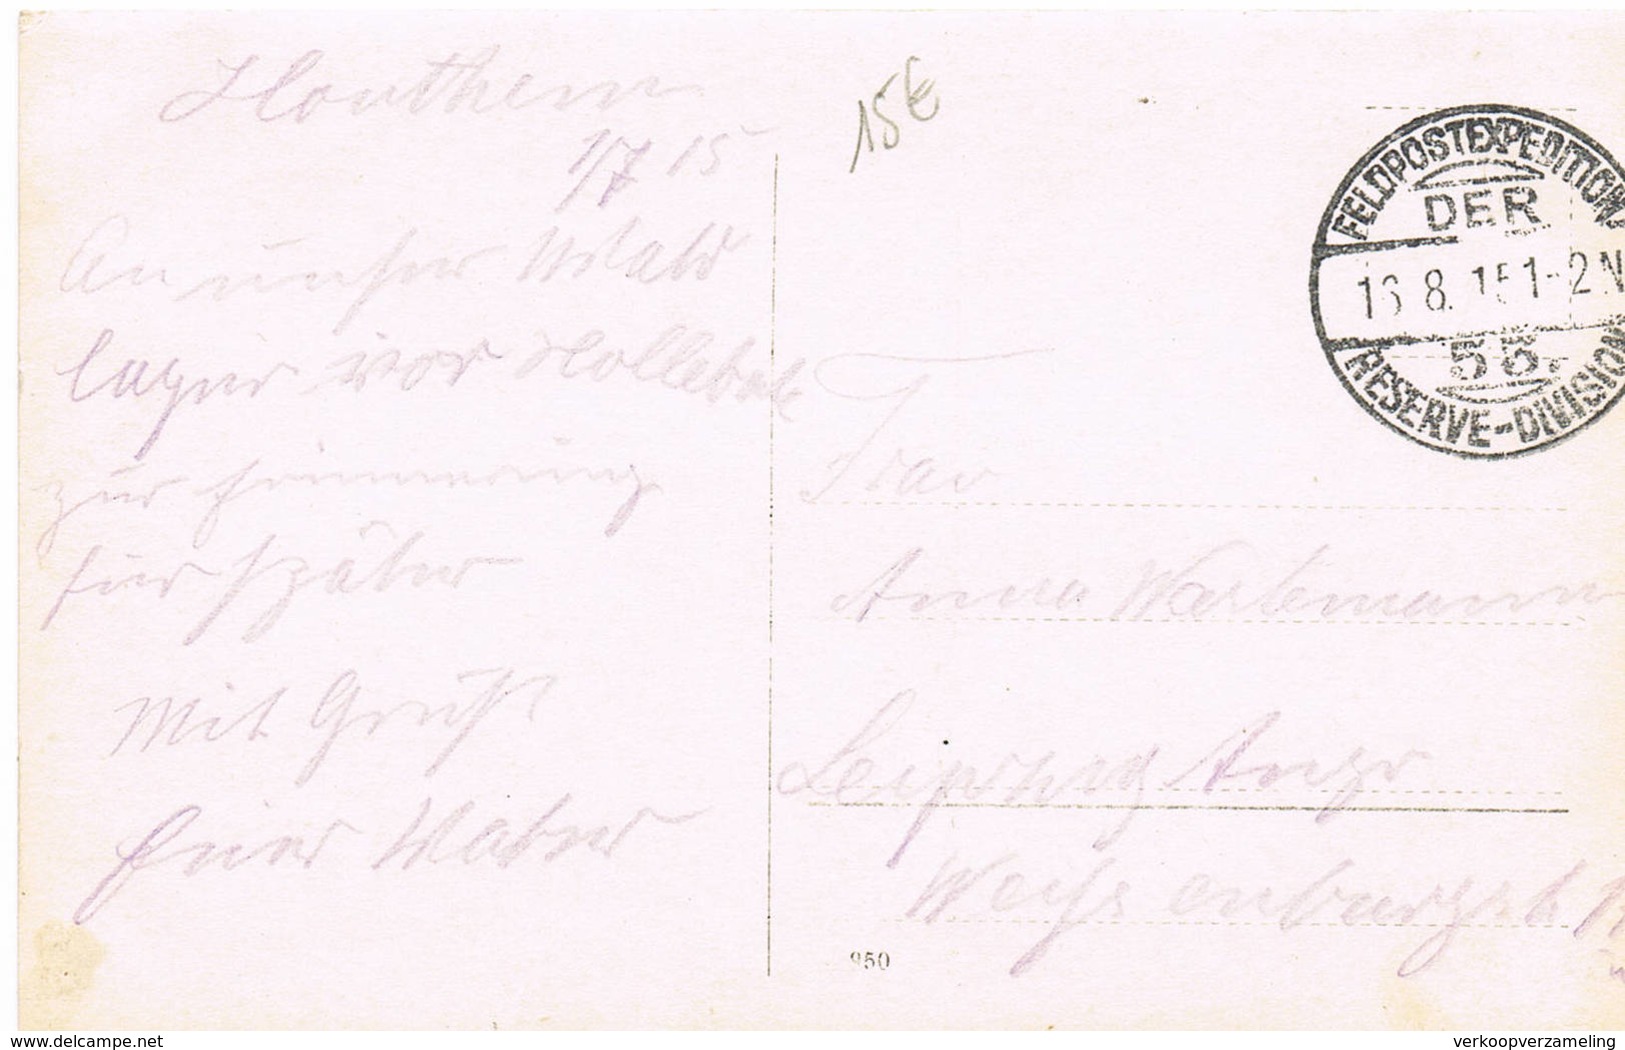 Houthem
1/7 15
An unser Wald
lager vor Hollebek
zur Erinnerung
für später
Mit Gruß
Euer Vater
15€
FELDPOSTEXPEDITION
DER
16 8. 15 1-2 N
53.
RESERVE-DIVISION
Frau
Anna Wartemann
Leipzig Angr
Weißenburgstr
950
delcampe.net
verkoopverzameling